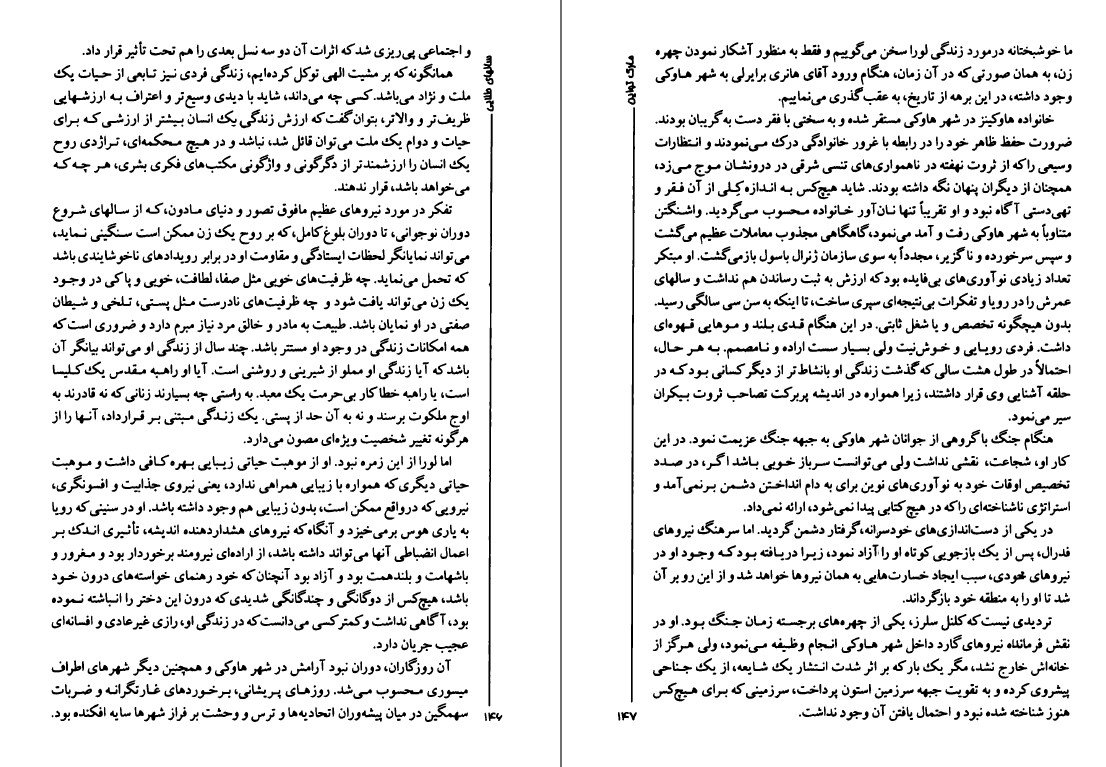 سالهای طلایی
و اجتماعی پی‌ریزی شد که اثرات آن دو سه نسل بعدی را هم تحت تأثیر قرار داد.
همانگونه که بر مشیت الهی توکل کرده‌ایم، زندگی فردی نیز تابعی از حیات یک
ملت و نژاد می‌باشد. کسی چه می‌داند، شاید با دیدی وسیع‌تر و اعتراف به ارزشهایی
ظریف‌تر و والاتر، بتوان گفت که ارزش زندگی یک انسان بیشتر از ارزشی که برای
حیات و دوام یک ملت می‌توان قائل شد، نباشد و در هیچ محکمه‌ای، تراژدی روح
یک انسان را ارزشمندتر از دگرگونی و واژگونی مکتب‌های فکری بشری، هر چه که
می‌خواهد باشد، قرار ندهند.
تفکر در مورد نیروهای عظیم مافوق تصور و دنیای مادون، که از سالهای شروع
دوران نوجوانی، تا دوران بلوغ کامل، که بر روح یک زن ممکن است سنگینی نماید،
می‌تواند نمایانگر لحظات ایستادگی و مقاومت او در برابر رویدادهای ناخوشایندی باشد
که تحمل می‌نماید. چه ظرفیت‌های خوبی مثل صفا، لطافت، خوبی و پاکی در وجود
یک زن می‌تواند یافت شود و چه ظرفیت‌های نادرست مثل پستی، تلخی و شیطان
صفتی در او نمایان باشد. طبیعت به مادر و خالق مرد نیاز مبرم دارد و ضروری است که
همه امکانات زندگی در وجود او مستتر باشد. چند سال از زندگی او می‌تواند بیانگر آن
باشد که آیا زندگی او مملو از شیرینی و روشنی است. آیا او راهبه مقدس یک کلیسا
است، یا راهبه خطاکار بی‌حرمت یک معبد. به راستی چه بسیارند زنانی که نه قادرند به
اوج ملکوت برسند و نه به آن حد از پستی. یک زندگی مبتنی بر قرارداد، آنها را از
هرگونه تغییر شخصیت ویژه‌ای مصون می‌دارد.
اما لورا از این زمره نبود. او از موهبت حیاتی زیبایی بهره کافی داشت و موهبت
حیاتی دیگری که همواره با زیبایی همراهی ندارد، یعنی نیروی جذابیت و افسونگری،
نیرویی که درواقع ممکن است، بدون زیبایی هم وجود داشته باشد. او در سنینی که رویا
به یاری هوس برمی‌خیزد و آنگاه که نیروهای هشداردهنده اندیشه، تأثیری اندک بر
اعمال انضباطی آنها می‌تواند داشته باشد، از اراده‌ای نیرومند برخوردار بود و مغرور و
باشهامت و بلندهمت بود و آزاد بود آنچنان که خود رهنمای خواسته‌های درون خود
باشد، هیچ‌کس از دوگانگی و چندگانگی شدیدی که درون این دختر را انباشته نموده
بود، آگاهی نداشت و کمتر کسی می‌دانست که در زندگی او، رازی غیرعادی و افسانه‌ای
عجیب جریان دارد.
آن روزگاران، دوران نبود آرامش در شهر هاوکی و همچنین دیگر شهرهای اطراف
میسوری محسوب می‌شد. روزهای پریشانی، برخوردهای غارتگرانه و ضربات
سهمگین در میان پیشه‌وران اتحادیه‌ها و ترس و وحشت بر فراز شهرها سایه افکنده بود.
۱۴۶
مارک تواین
ما خوشبختانه درمورد زندگی لورا سخن می‌گوییم و فقط به منظور آشکار نمودن چهره
زن، به همان صورتی که در آن زمان، هنگام ورود آقای هانری برایرلی به شهر هاوکی
وجود داشته، در این برهه از تاریخ، به عقب‌گذری می‌نماییم.
خانواده هاوکینز در شهر هاوکی مستقر شده و به سختی با فقر دست به گریبان بودند.
ضرورت حفظ ظاهر خود را در رابطه با غرور خانوادگی درک می‌نمودند و انتظارات
وسیعی را که از ثروت نهفته در ناهمواری‌های تنسی شرقی در درونشان موج می‌زد،
همچنان از دیگران پنهان نگه داشته بودند. شاید هیچ‌کس به اندازه کِلی از آن فقر و
تهی‌دستی آگاه نبود و او تقریباً تنها نان‌آور خانواده محسوب می‌گردید. واشنگتن
متناوباً به شهر هاوکی رفت و آمد می‌نمود، گاهگاهی مجذوب معاملات عظیم می‌گشت
و سپس سرخورده و ناگزیر، مجدداً به سوی سازمان ژنرال باسول بازمی‌گشت. او مبتکر
تعداد زیادی نوآوری‌های بی‌فایده بود که ارزش به ثبت رساندن هم نداشت و سالهای
عمرش را در رویا و تفکرات بی‌نتیجه‌ای سپری ساخت، تا اینکه به سن سی سالگی رسید.
بدون هیچگونه تخصص و یا شغل ثابتی. در این هنگام قدی بلند و موهایی قهوه‌ای
داشت. فردی رویایی و خوش‌نیت ولی بسیار سست اراده و نامصمم. به هر حال،
احتمالاً در طول هشت سالی که گذشت زندگی او بانشاط‌تر از دیگر کسانی بود که در
حلقه آشنایی وی قرار داشتند، زیرا همواره در اندیشه پربرکت تصاحب ثروت بیکران
سیر می‌نمود.
هنگام جنگ با گروهی از جوانان شهر هاوکی به جبهه جنگ عزیمت نمود. در این
کار او، شجاعت، نقشی نداشت ولی می‌توانست سرباز خوبی باشد اگر، در صدد
تخصیص اوقات خود به نوآوری‌های نوین برای به دام انداختن دشمن برنمی‌آمد و
استراتژی ناشناخته‌ای را که در هیچ کتابی پیدا نمی‌شود، ارائه نمی‌داد.
در یکی از دست‌اندازی‌های خودسرانه، گرفتار دشمن گردید. اما سرهنگ نیروهای
فدرال، پس از یک بازجویی کوتاه او را آزاد نمود، زیرا دریافته بود که وجود او در
نیروهای خودی، سبب ایجاد خسارت‌هایی به همان نیروها خواهد شد و از این رو بر آن
شد تا او را به منطقه خود بازگرداند.
تردیدی نیست که کلنل سلرز، یکی از چهره‌های برجسته زمان جنگ بود. او در
نقش فرمانده نیروهای گارد داخل شهر هاوکی انجام وظیفه می‌نمود، ولی هرگز از
خانه‌اش خارج نشد، مگر یک بار که بر اثر شدت انتشار یک شایعه، از یک جناحی
پیشروی کرده و به تقویت جبهه سرزمین استون پرداخت، سرزمینی که برای هیچ‌کس
هنوز شناخته شده نبود و احتمال یافتن آن وجود نداشت.
۱۴۷